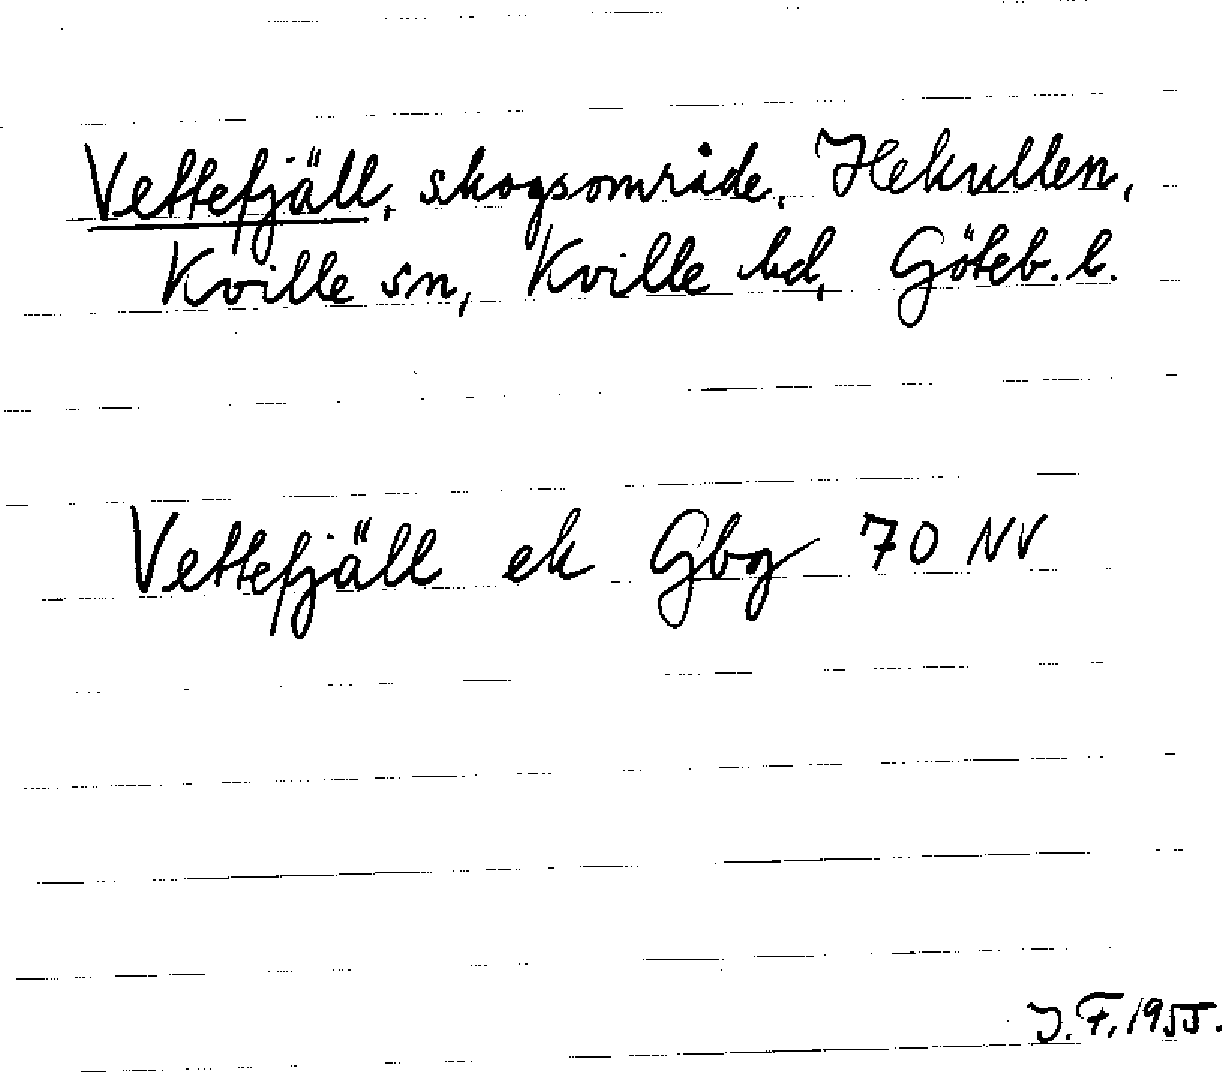 Vettefjäll, skogsområde, Hekullen,
Kville sn, Kville hd, Göteb. l.
Vettefjäll ek Gbg 70 NV
J.F. 1955.